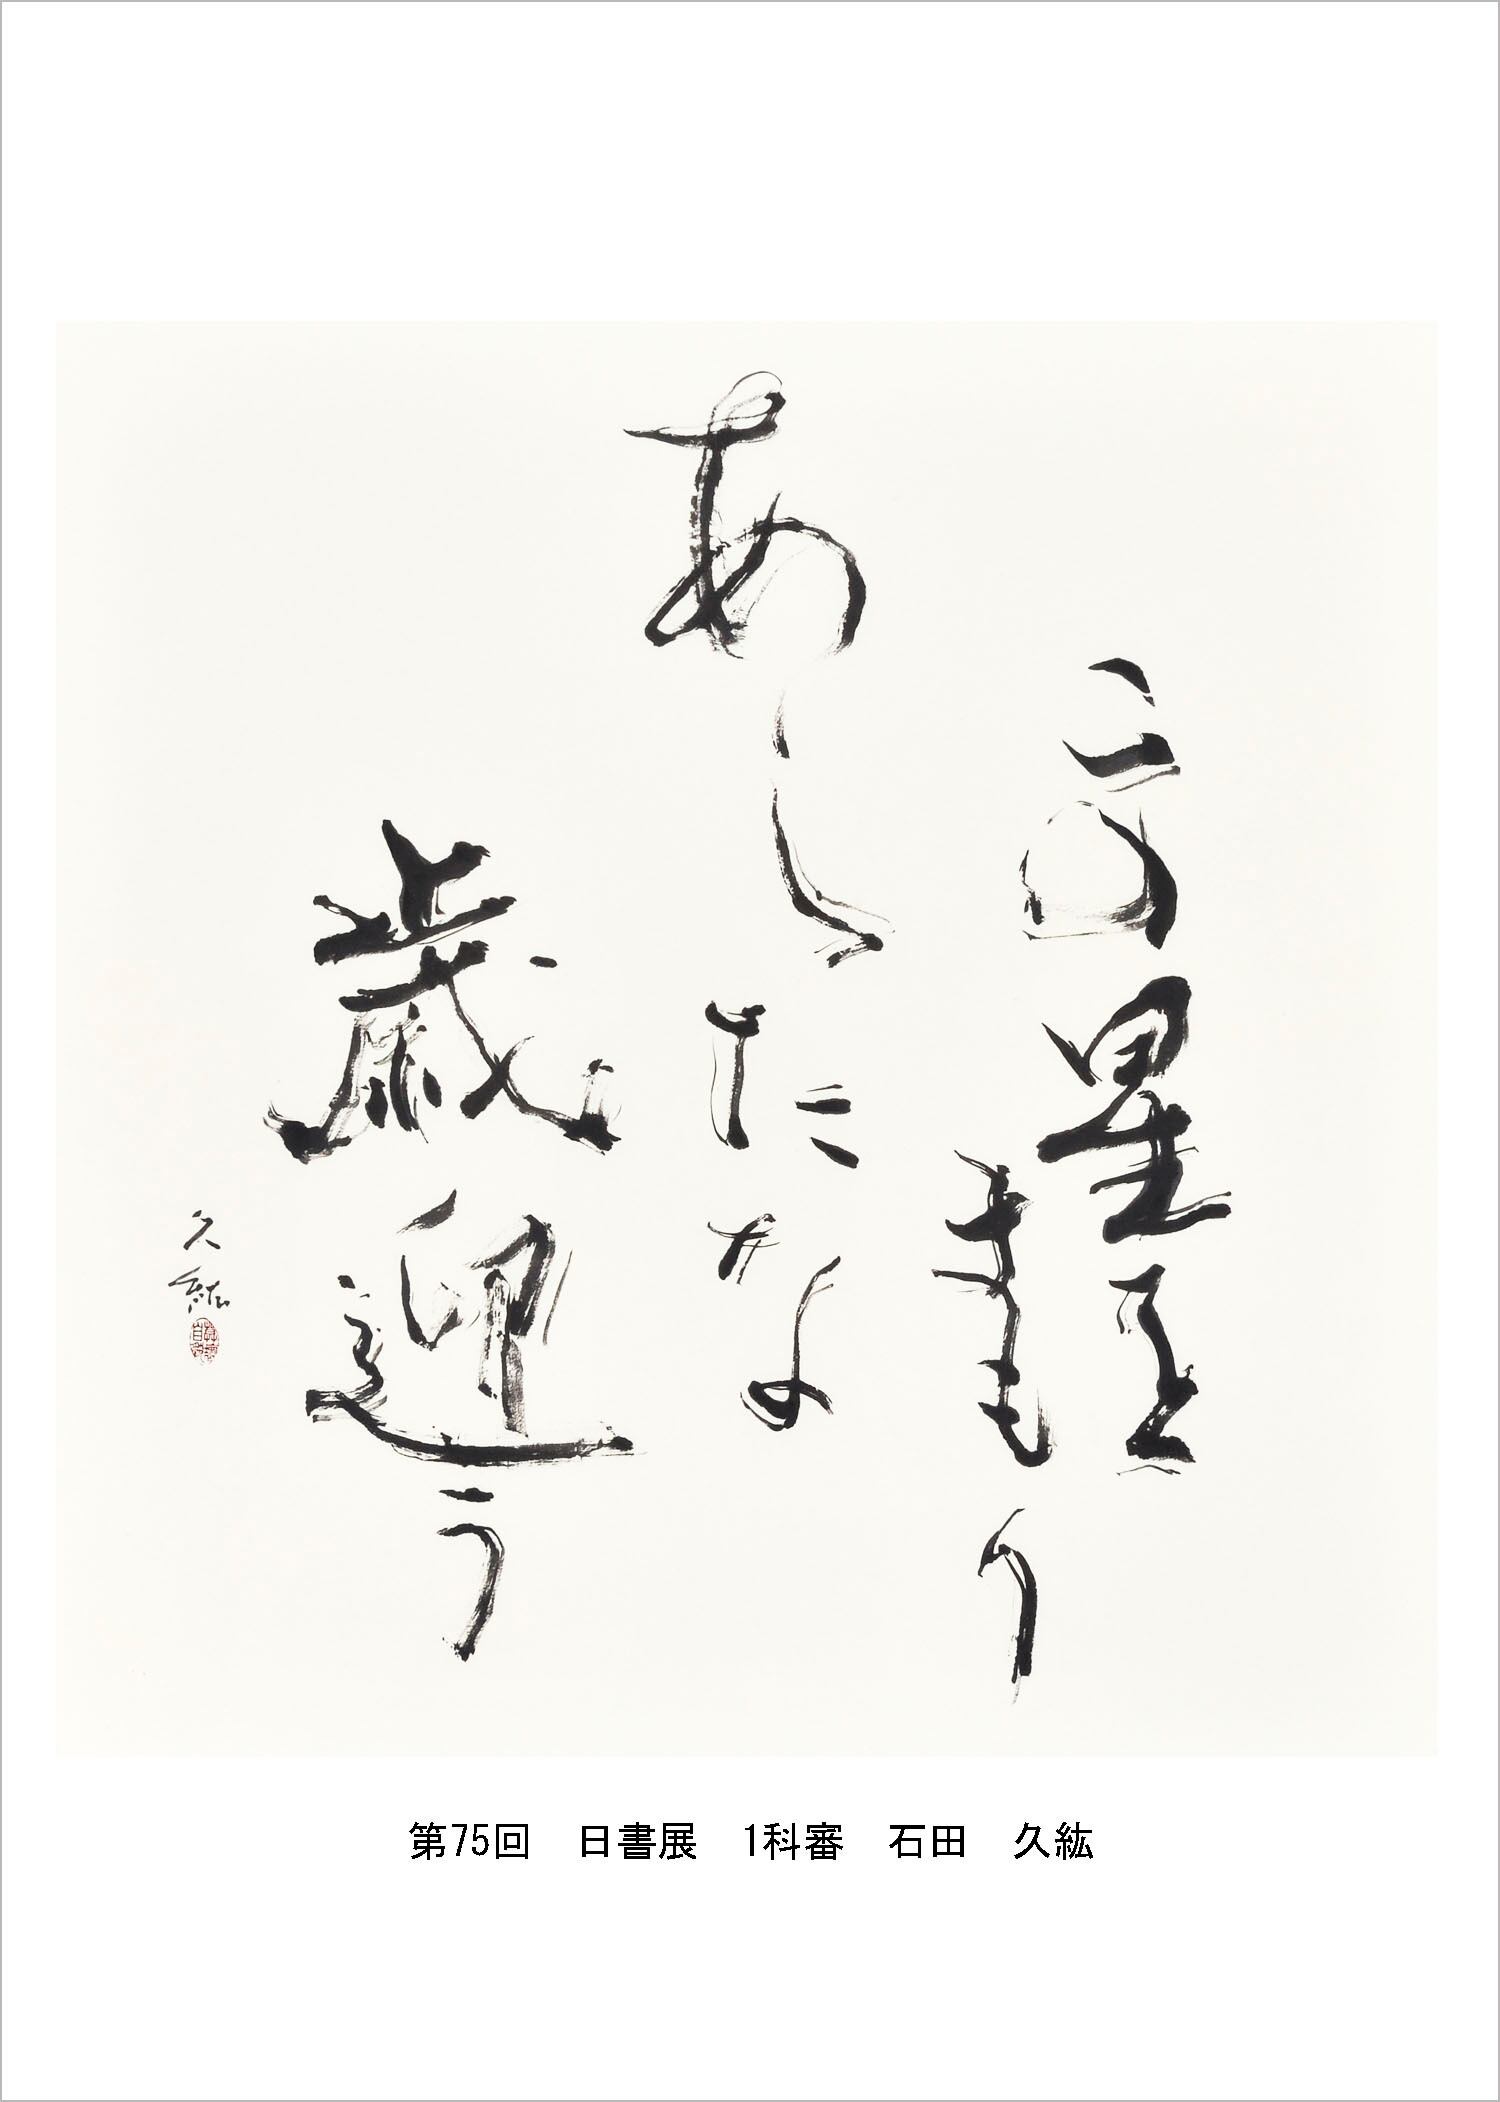 この星を
まもり
あらたな
歳迎う
久紘
第75回　日書展　1科審　石田　久紘